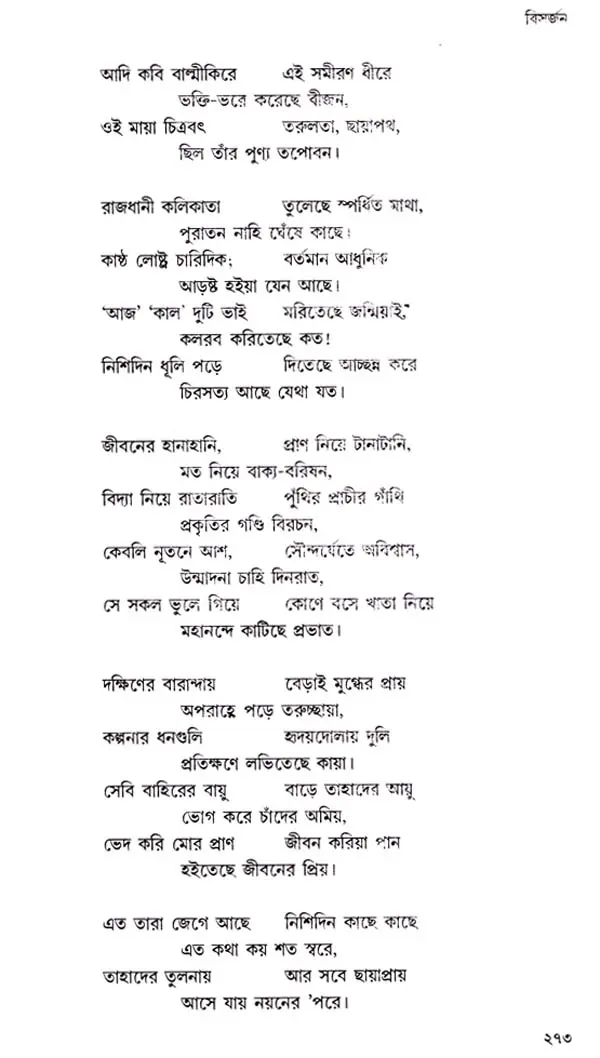 বিসর্জন
আদি কবি বাল্মীকিরে এই সমীরণ ধীরে
ভক্তি-ভরে করেছে বীজন,
ওই মায়া চিত্রবৎ তরুলতা, ছায়াপথ,
ছিল তাঁর পুণ্য তপোবন।
রাজধানী কলিকাতা তুলেছে স্পর্ধিত মাথা,
পুরাতন নাহি ঘেঁষে কাছে।
কাষ্ঠ লোষ্ট্র চারিদিক; বর্তমান আধুনিক
আড়ষ্ট হইয়া যেন আছে।
'আজ' 'কাল' দুটি ভাই মরিতেছে জন্মিয়াই,
কলরব করিতেছে কত!
নিশিদিন ধূলি পড়ে দিতেছে আচ্ছন্ন করে
চিরসত্য আছে যেথা যত।
জীবনের হানাহানি, প্রাণ নিয়ে টানাটানি,
মত নিয়ে বাক্য-বরিষন,
বিদ্যা নিয়ে রাতারাতি পুঁথির প্রাচীর গাঁথি
প্রকৃতির গণ্ডি বিরচন,
কেবলি নূতনে আশ, সৌন্দর্যেতে অবিশ্বাস,
উন্মাদনা চাহি দিনরাত,
সে সকল ভুলে গিয়ে কোণে বসে খাতা নিয়ে
মহানন্দে কাটিছে প্রভাত।
দক্ষিণের বারান্দায় বেড়াই মুগ্ধের প্রায়
অপরাহ্ণে পড়ে তরুচ্ছায়া,
কল্পনার ধনগুলি হৃদয়দোলায় দুলি
প্রতিক্ষণে লভিতেছে কায়া।
সেবি বাহিরের বায়ু বাড়ে তাহাদের আয়ু
ভোগ করে চাঁদের অমিয়,
ভেদ করি মোর প্রাণ জীবন করিয়া পান
হইতেছে জীবনের প্রিয়।
এত তারা জেগে আছে নিশিদিন কাছে কাছে
এত কথা কয় শত স্বরে,
তাহাদের তুলনায় আর সবে ছায়াপ্রায়
আসে যায় নয়নের 'পরে।
২৭৩